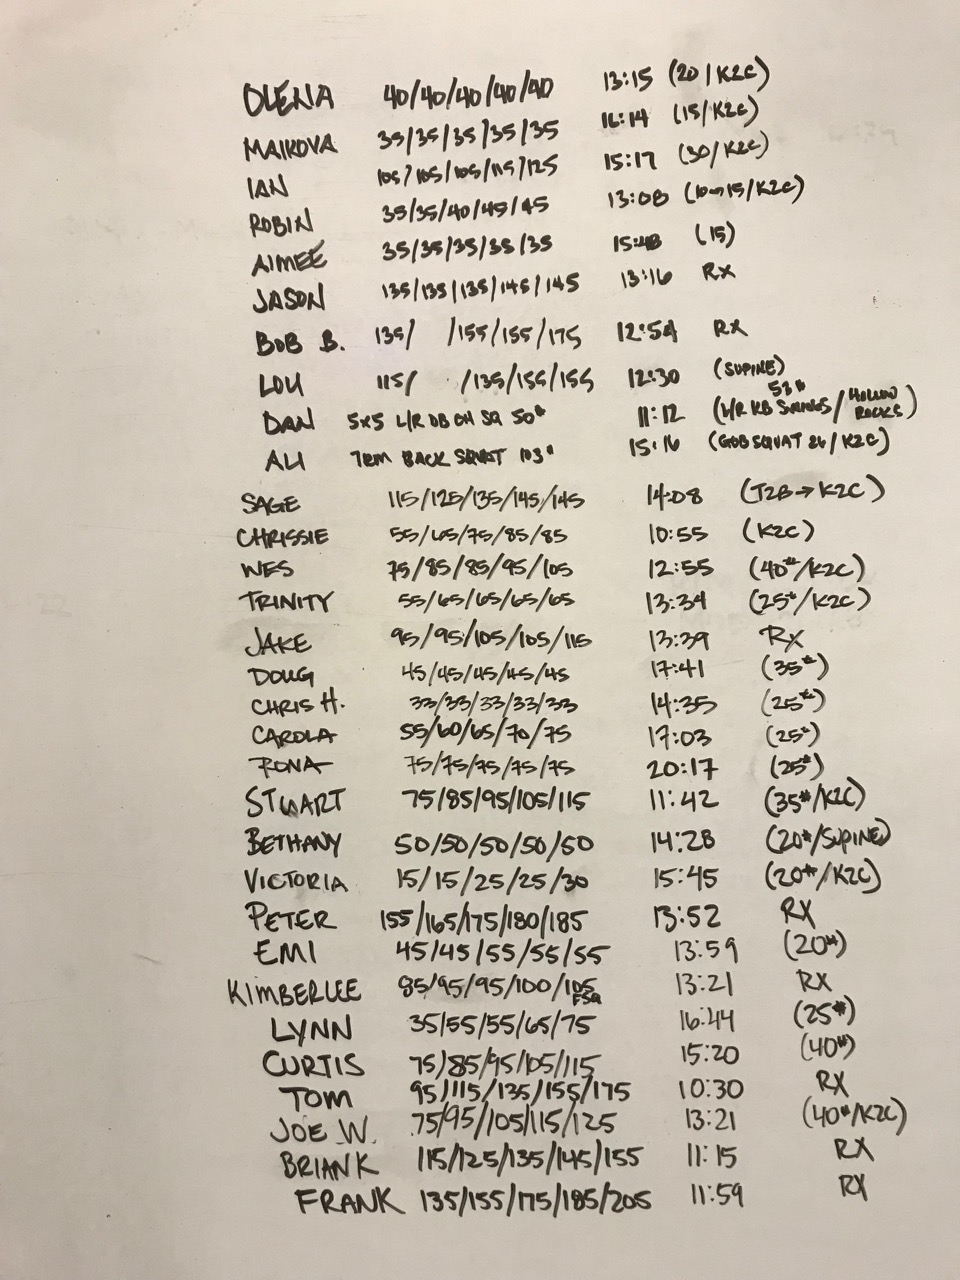 OLENA 40/40/40/40/40 13:15 (20/K2C)
MAIKOVA 35/35/35/35/35 16:14 (15/K2C)
IAN 105/105/105/115/125 15:17 (30/K2C)
ROBIN 35/35/40/45/45 13:08 (10→15/K2C)
AIMEE 35/35/35/35/35 15:48 (15)
JASON 135/135/135/145/145 13:16 RX
BOB B. 135/ /155/155/175 12:54 RX
LOU 115/ /135/155/155 12:30 (SUPINE)
DAN 5x5 L/R DB OH SQ 50# 11:12 (L/R KB SWINGS 53#/HOLLOW ROCKS)
ALI 7RM BACK SQUAT 103# 15:16 (GOB SQUAT 26/K2C)
SAGE 115/125/135/145/145 14:08 (T2B→K2C)
CHRISSIE 55/65/75/85/85 10:55 (K2C)
WES 75/85/85/95/105 12:55 (40#/K2C)
TRINITY 55/65/65/65/65 13:34 (25#/K2C)
JAKE 95/95/105/105/115 13:39 RX
DOUG 45/45/45/45/45 17:41 (35#)
CHRIS H. 33/33/33/33/33 14:35 (25#)
CAROLA 55/60/65/70/75 17:03 (25#)
RONA 75/75/75/75/75 20:17 (25#)
STUART 75/85/95/105/115 11:42 (35#/K2C)
BETHANY 50/50/50/50/50 14:28 (20#/SUPINE)
VICTORIA 15/15/25/25/30 15:45 (20#/K2C)
PETER 155/165/175/180/185 13:52 RX
EMI 45/45/55/55/55 13:59 (20#)
KIMBERLEE 85/95/95/100/105 FSQ 13:21 RX
LYNN 35/55/55/65/75 16:44 (25#)
CURTIS 75/85/95/105/115 15:20 (40#)
TOM 95/115/135/155/175 10:30 RX
JOE W. 75/95/105/115/125 13:21 (40#/K2C)
BRIANK 115/125/135/145/155 11:15 RX
FRANK 135/155/175/185/205 11:59 RX